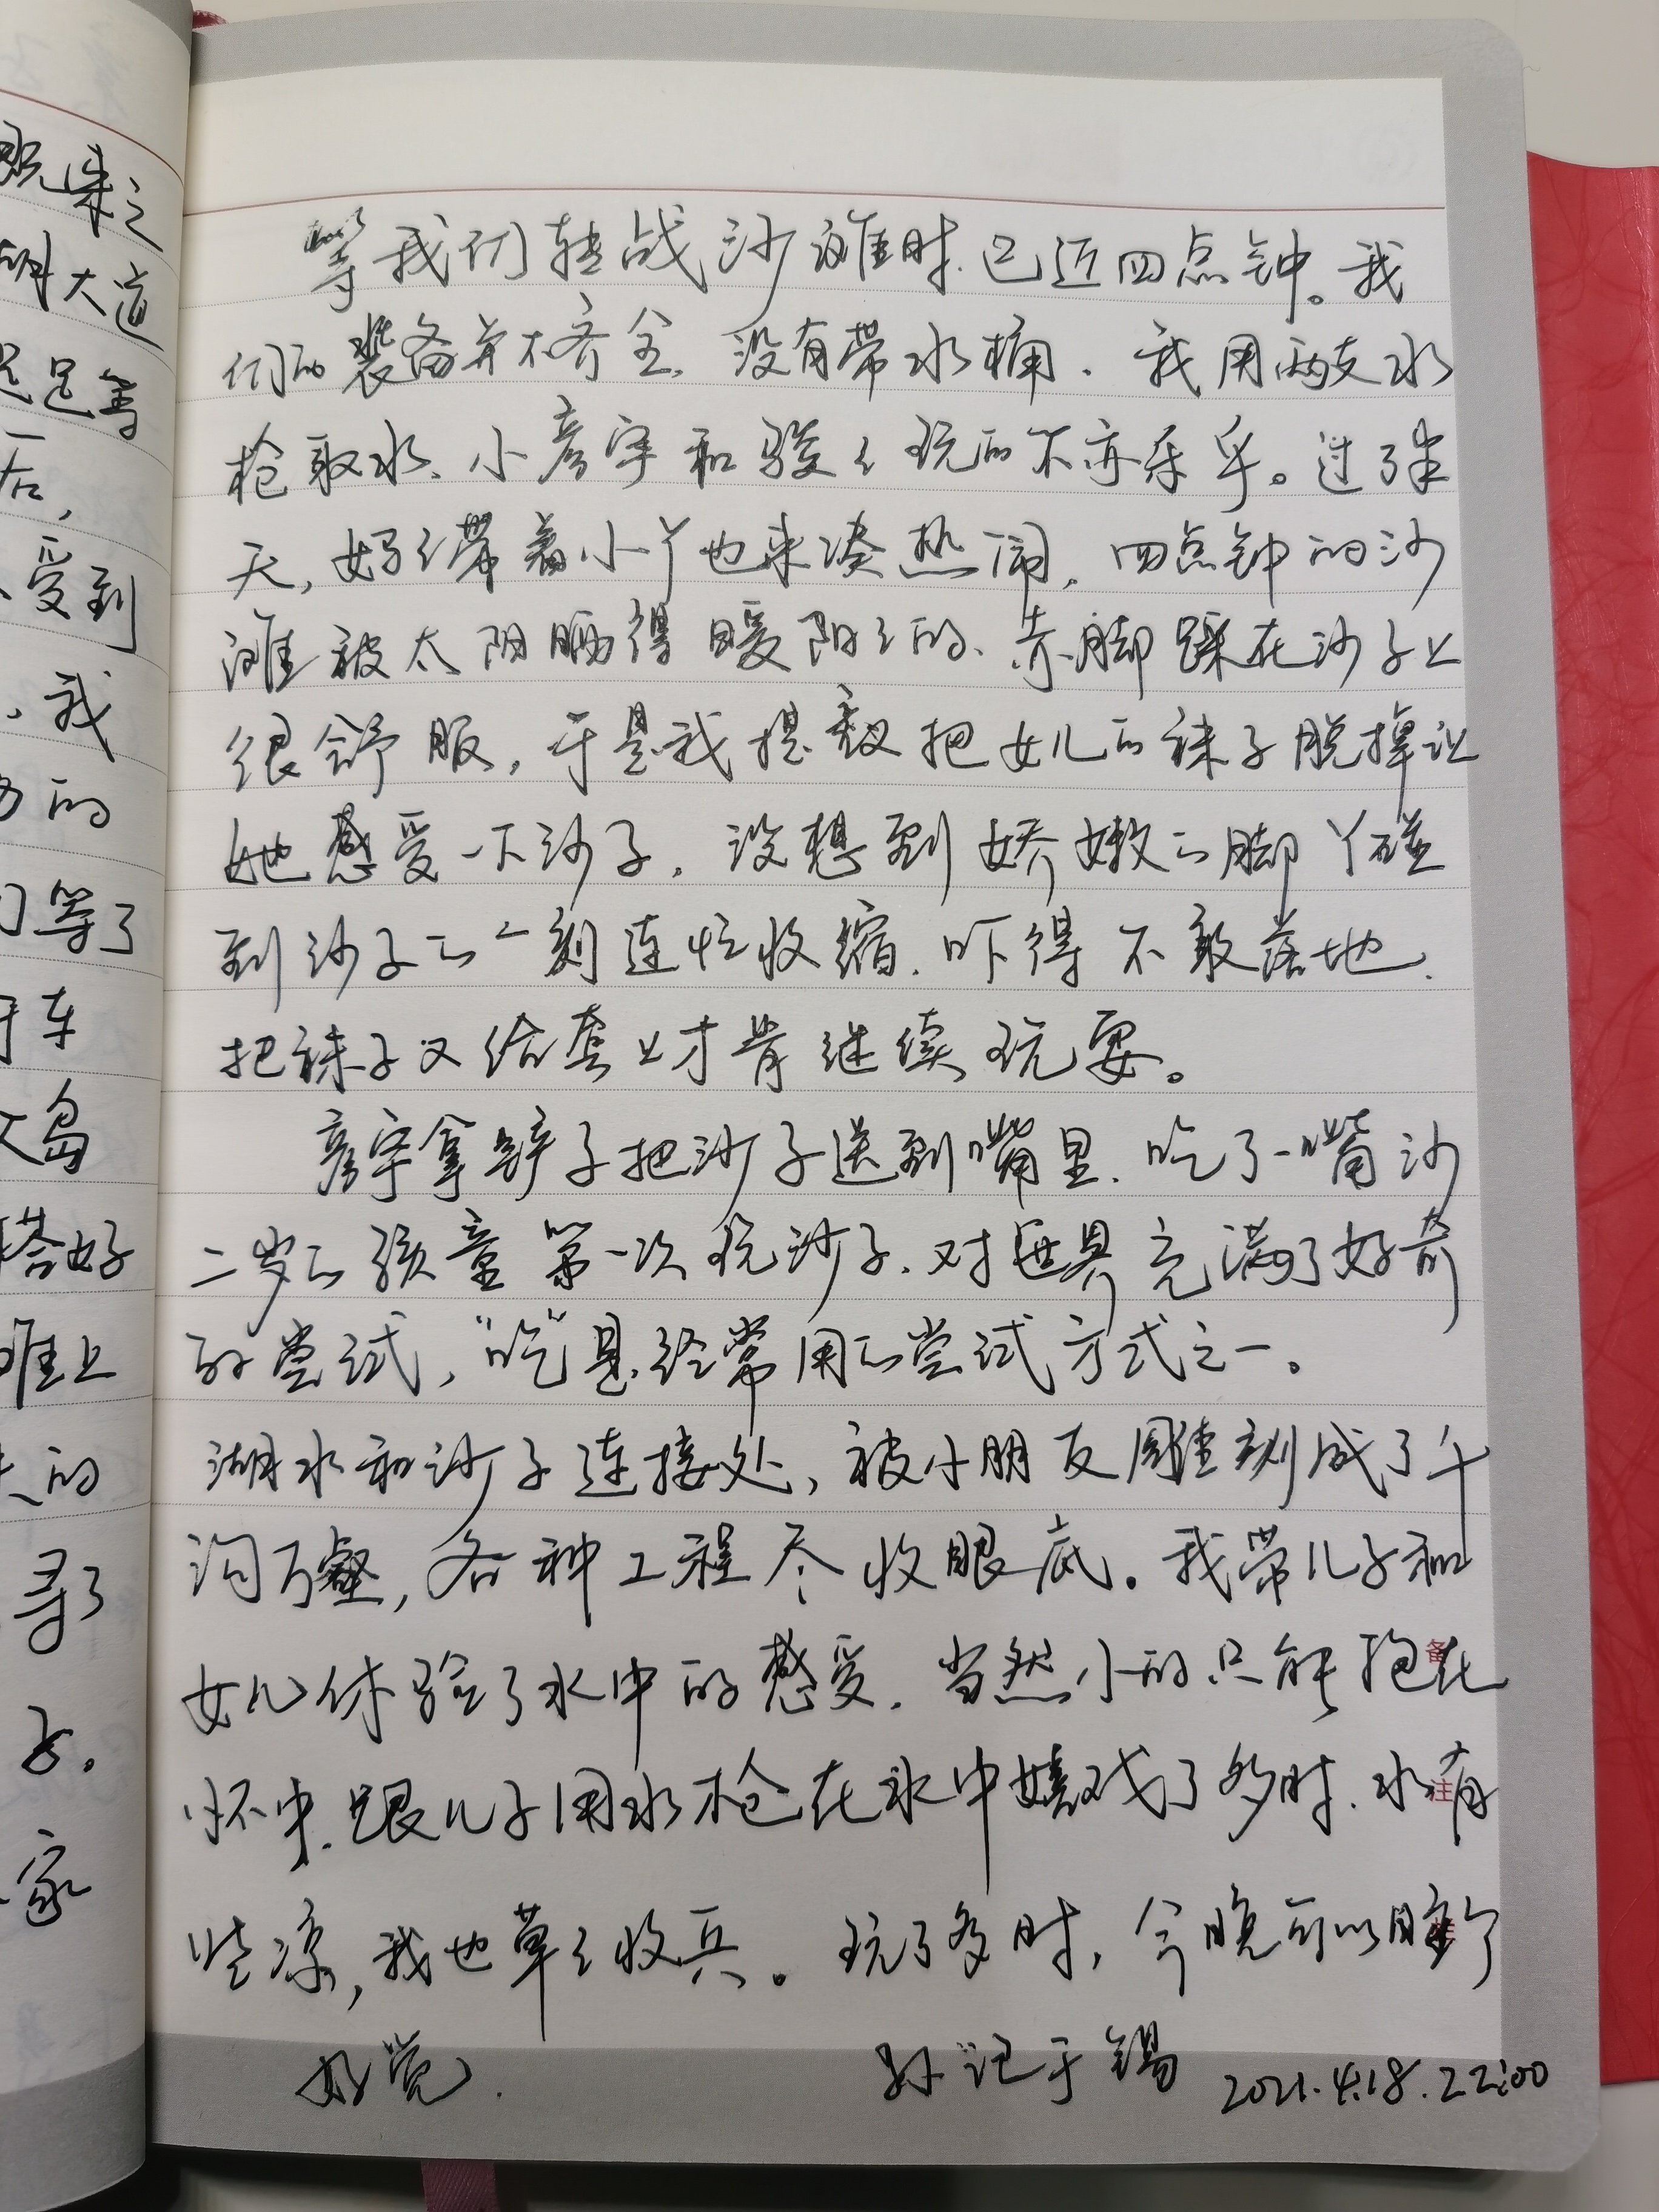 等我们转战沙滩时,已近四点钟。我
们的装备并不齐全,没有带水桶,我用两支水
枪取水、小彦宇和骏々玩的不亦乐乎。过了半
天,好々带着小丫也来凑热闹,四点钟的沙
滩被太阳晒得暖阳々的、赤脚踩在沙子上
很舒服,于是我提议把女儿的袜子脱掉让
她感受一下沙子,没想到娇嫩的脚丫碰
到沙子的一刻连忙收缩,吓得不敢落地,
把袜子又给套上才肯继续玩耍。
彦宇拿铲子把沙子送到嘴里,吃了一嘴沙
二岁的孩童第一次玩沙子,对世界充满了好奇
的尝试,“吃”是经常用的尝试方式之一。
湖水和沙子连接处,被小朋友雕刻成了千
沟万壑,各种工程尽收眼底。我带儿子和
女儿体验了水中的感受,当然小的只能抱在
怀中,跟儿子用水枪在水中嬉戏了多时,水有
些凉,我也草々收兵。玩了多时,今晚可以睡个
好觉.
孙记于锡 2021.4.18.22:00
备
注
大道
足足等
受到
,我
的
等了
车
岛
搭好
滩上
的
寻了
子。
家